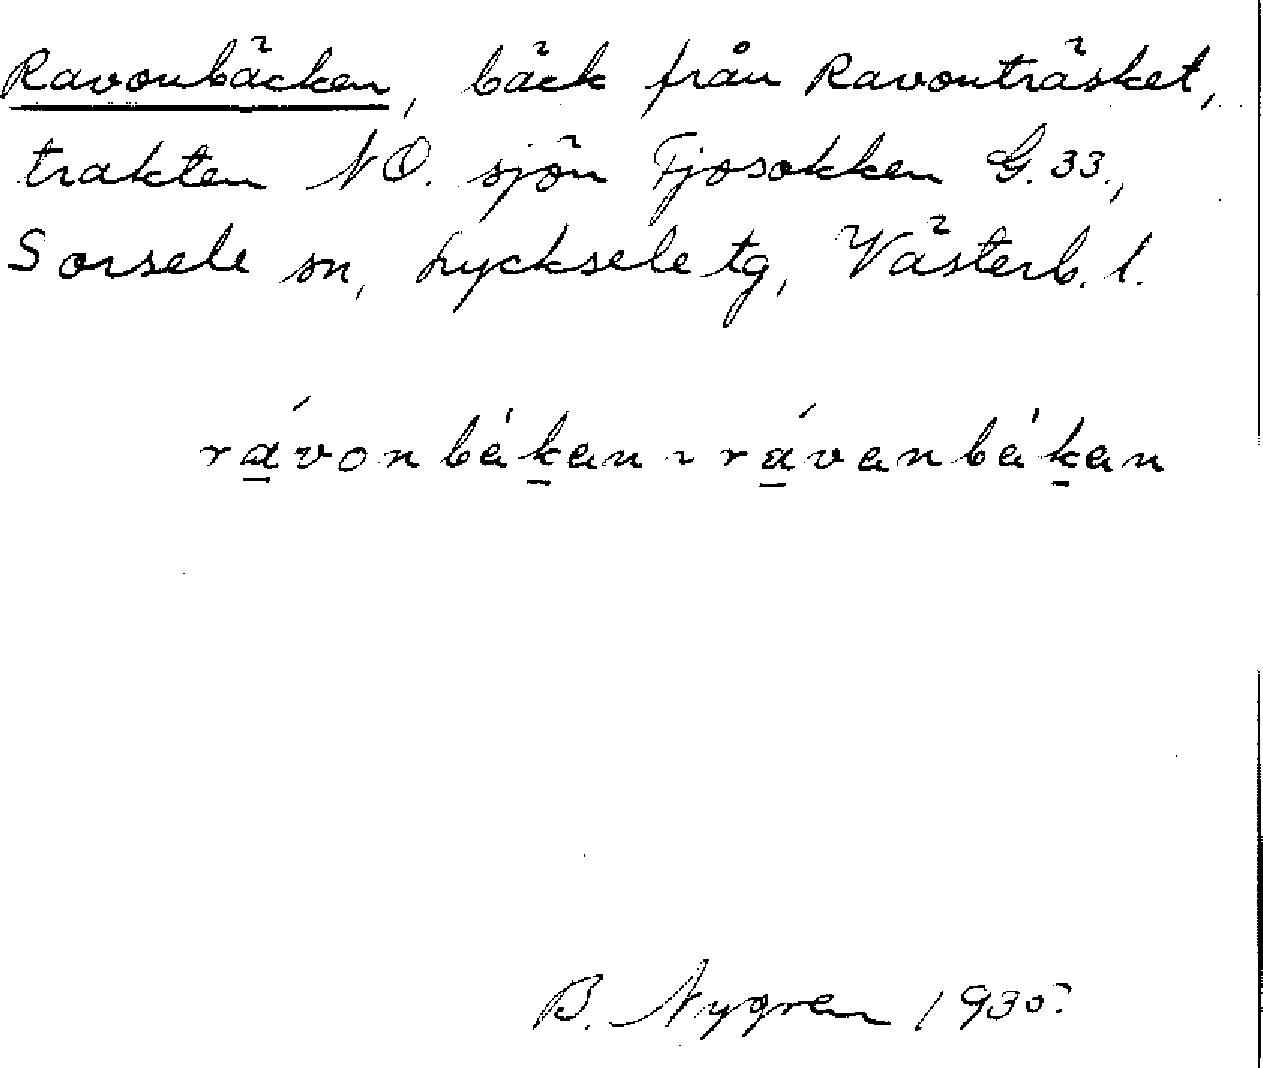 Ravonbäcken, bäck från Ravonträsket,
trakten NO. sjön Fjosokken G. 33.,
Sorsele sn, Lycksele tg, Västerb. l.
rávonbèkan ~ rávanbèkan
B. Nygren 1930?